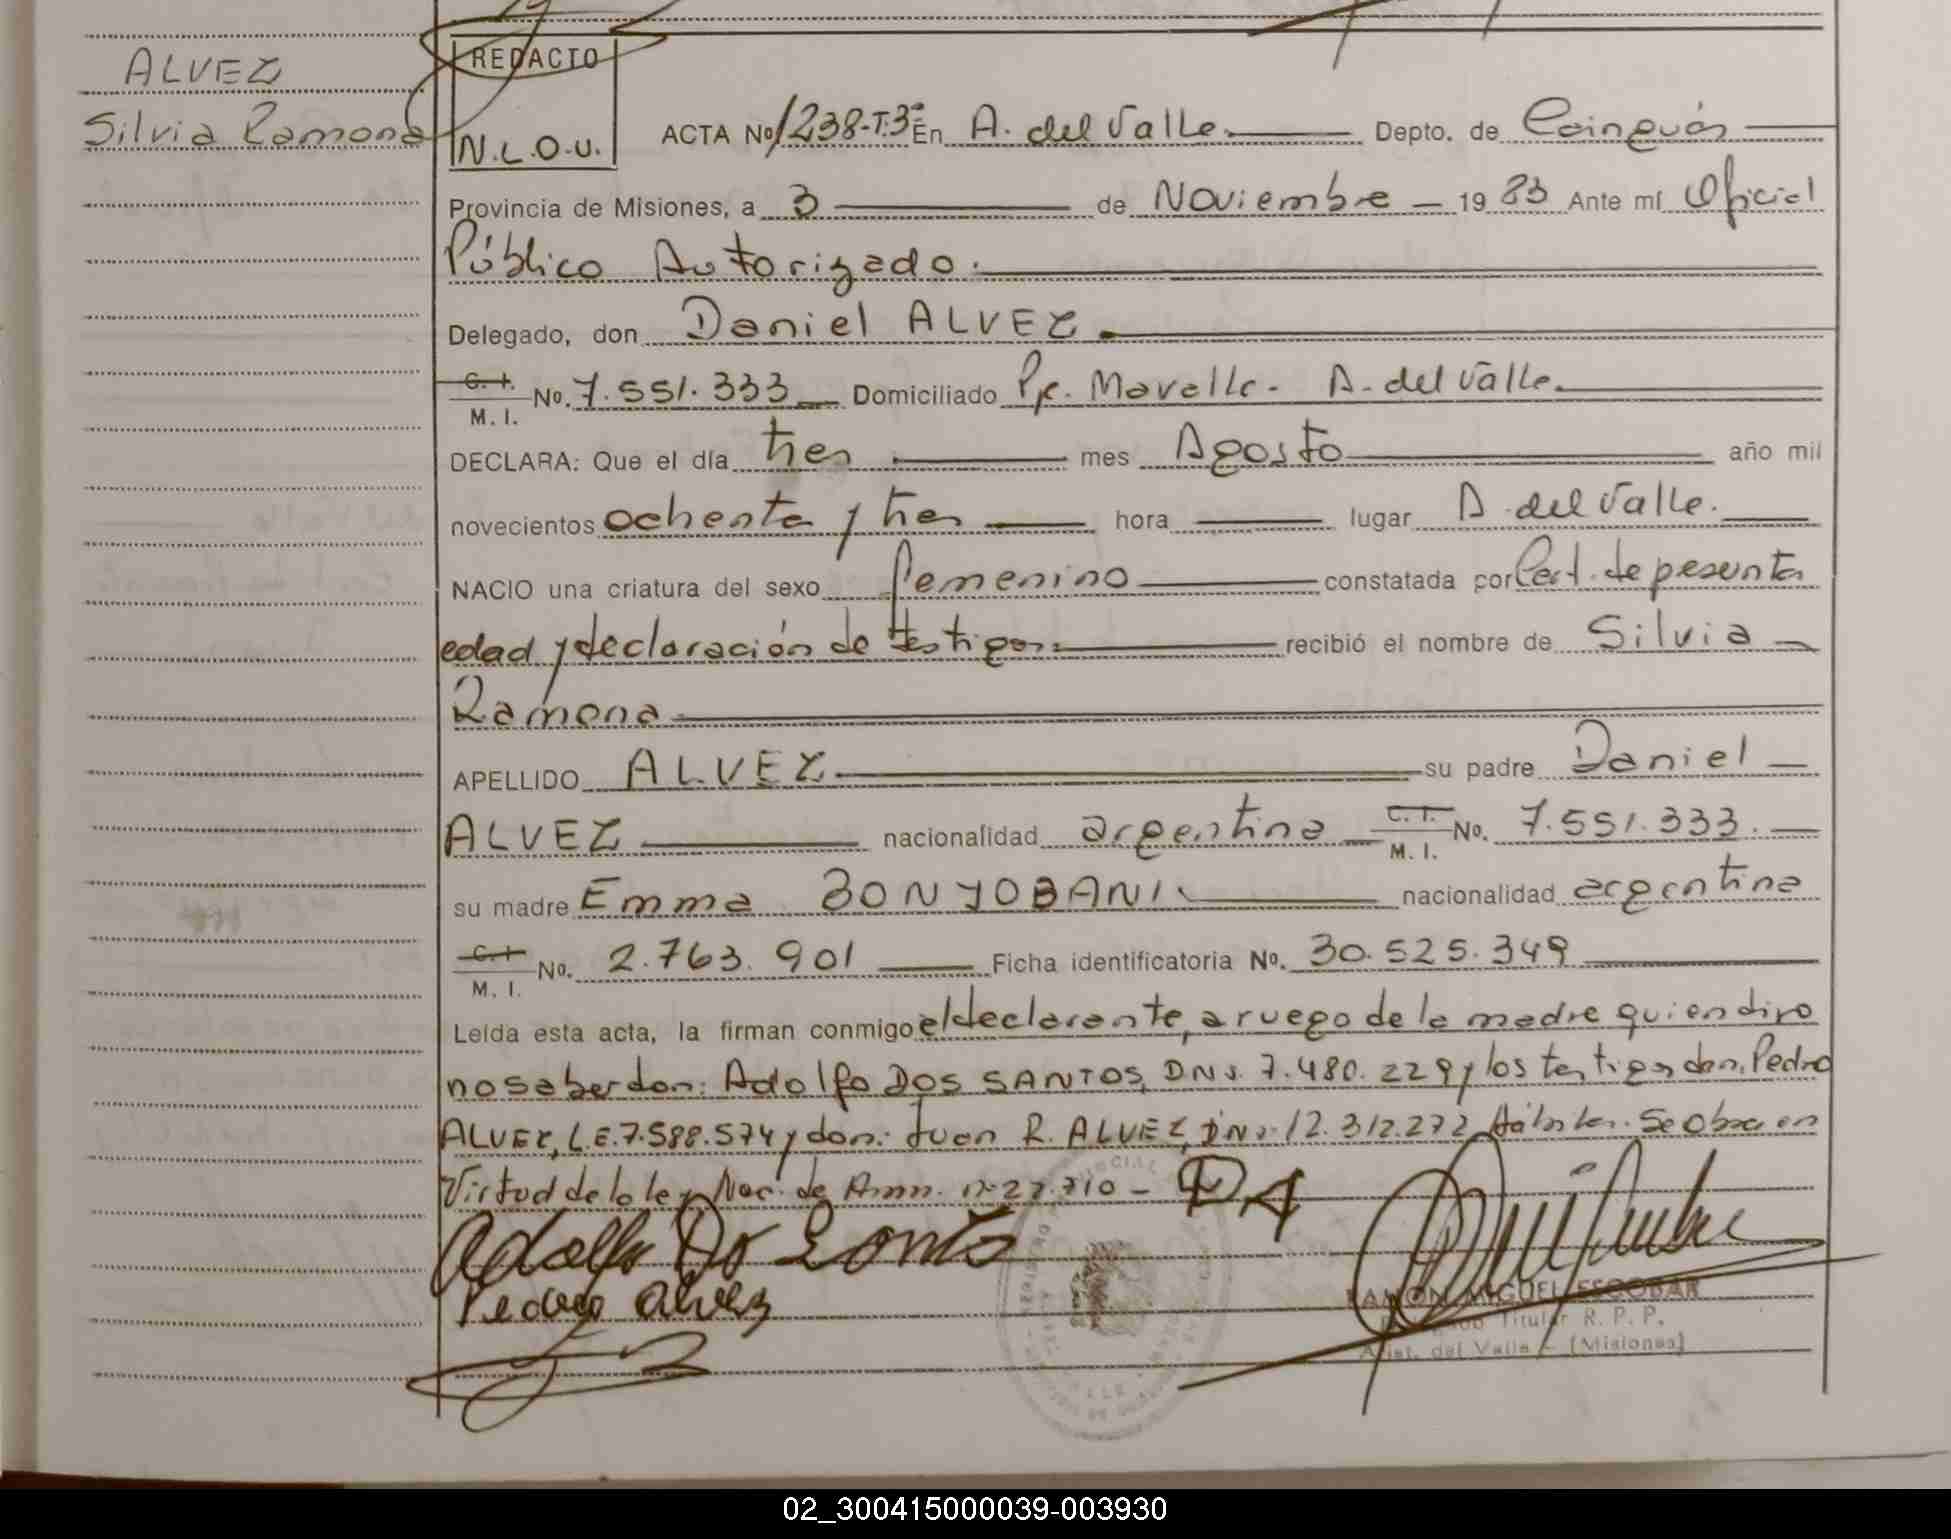 ALVEZ
Silvia Ramona
REDACTO
N.L.O.U.
ACTA Nº 1238-T.3º En A. del Valle. Depto. de Cainguás
Provincia de Misiones, a 3 de Noviembre 1983 Ante mí Oficial
Público Autorizado.
Delegado, don Daniel ALVEZ.
C. I.
M. I. No. 7.551.333 Domiciliado Pje. Mavalle - A. del Valle.
DECLARA: Que el día tres mes Agosto año mil
novecientos ochenta y tres hora lugar A. del Valle.
NACIO una criatura del sexo femenino constatada por Cert. de pesunta
edad y declaración de testigos: recibió el nombre de Silvia
Ramona
APELLIDO ALVEZ su padre Daniel
ALVEZ nacionalidad argentina C. I. M. I. No. 7.551.333.
su madre Emma BONYOBANI nacionalidad argentina
C. I.
M. I. No. 2.763.901 Ficha identificatoria Nº. 30.525.349
Leída esta acta, la firman conmigo el declarante, a ruego de la madre quien dijo
no saber don: Adolfo DOS SANTOS, DNI. 7.480.229 y los testigos don: Pedro
ALVEZ, L.E. 7.588.574 y don: Juan R. ALVEZ, DNI. 12.312.272 hábiles. Se obra en
Virtud de la ley Nac. de Amn. nº 22.710 -
DA
Adolfo Do Santo
Pedro Alvez
RAMON MIGUEL ESCOBAR
Titular R. P. P.
Arist. del Valle - (Misiones)
02_300415000039-003930